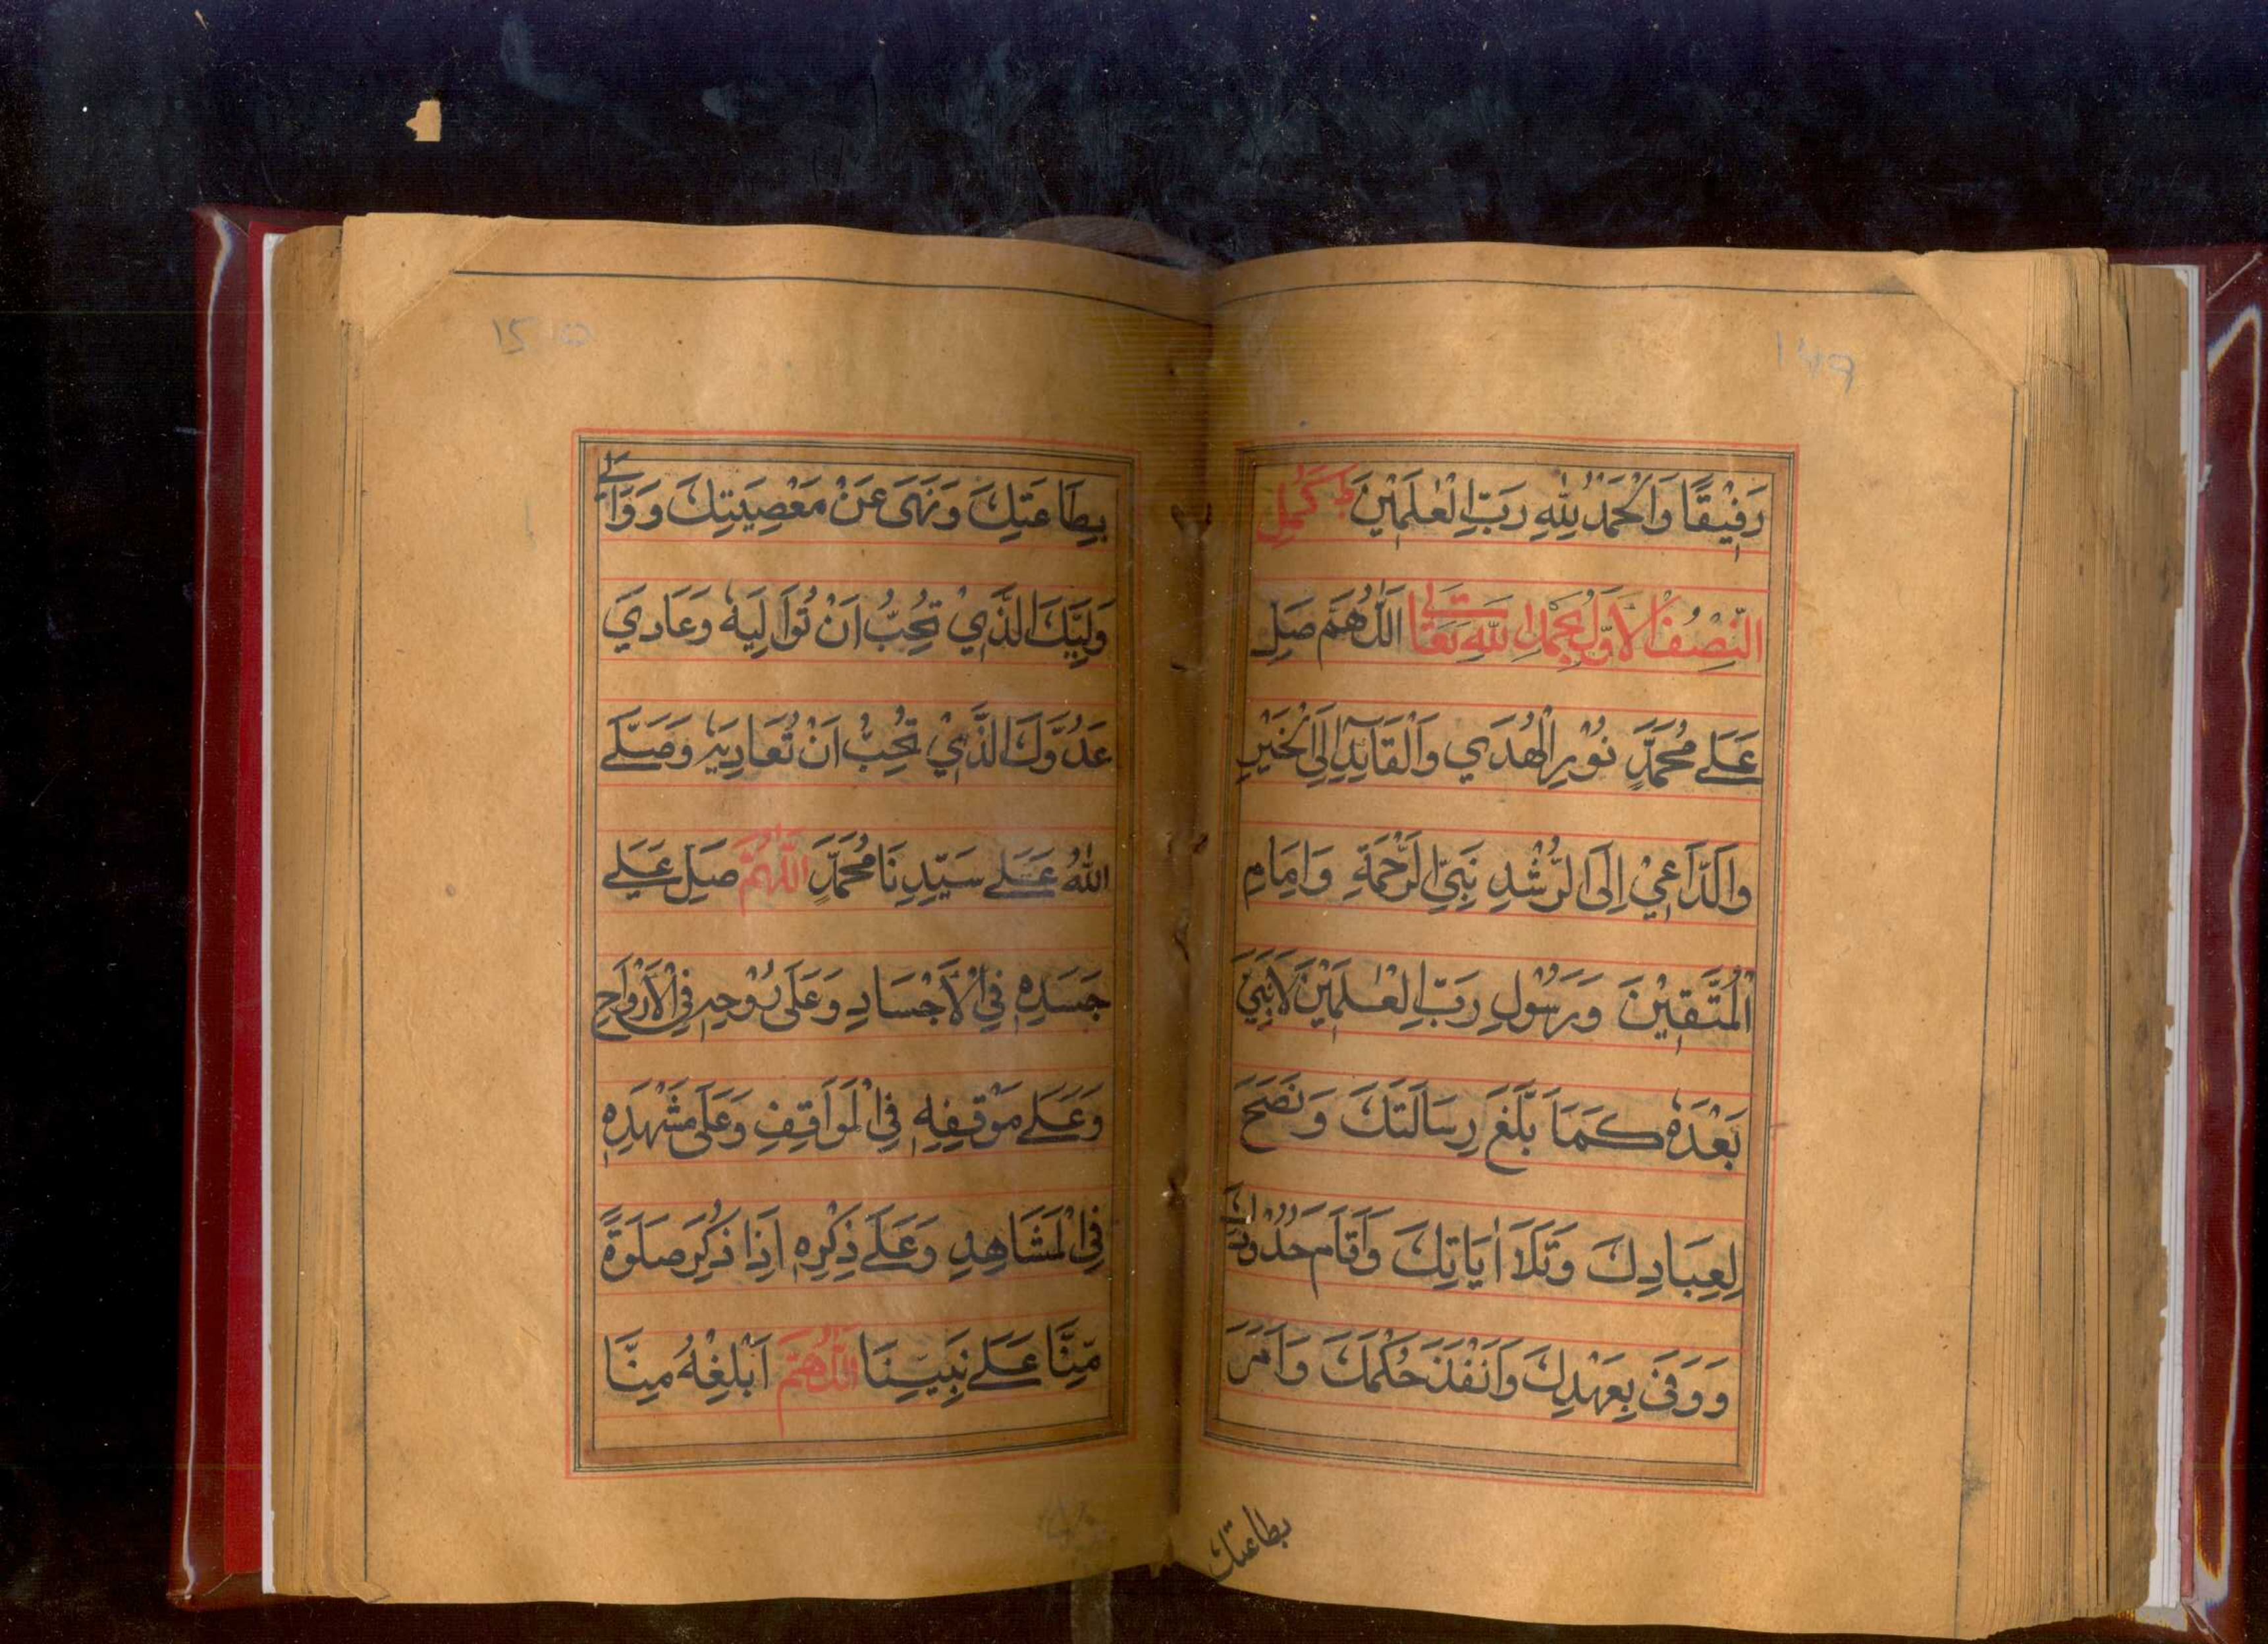 رَفِيْقًا وَالْحَمْدُ لِلّٰهِ رَبِّ الْعٰلَمِيْنَ ط كَمُلَ
النِّصْفُ الْاَوَّلُ بِحَمْدِ اللّٰهِ تَعَالٰى اَللّٰهُمَّ صَلِّ
عَلٰے مُحَمَّدٍ نُوْرِ الْهُدَي وَالْقَآئِدِ اِلَى الْخَيْرِ
وَالدَّاعِيْ اِلَى الرُّشْدِ نَبِيِّ الرَّحْمَةِ وَاِمَامِ
الْمُتَّقِيْنَ وَرَسُوْلِ رَبِّ الْعٰلَمِيْنَ لَا نَبِيَّ
بَعْدَهٗ كَمَا بَلَّغَ رِسَالَتَكَ وَنَصَحَ
لِعِبَادِكَ وَتَلَا اٰيَاتِكَ وَاَقَامَ حُدُوْدَكَ
وَوَفٰى بِعَهْدِكَ وَاَنْفَذَ حُكْمَكَ وَاَمَرَ
بطاعتك
بِطَاعَتِكَ وَنَهَى عَنْ مَعْصِيَتِكَ وَوَالٰى
وَلِيَّكَ الَّذِيْ تُحِبُّ اَنْ تُوَالِيَهٗ وَعَادَي
عَدُوَّكَ الَّذِيْ تُحِبُّ اَنْ تُعَادِيَهٗ وَصَلَّے
اللّٰهُ عَلٰے سَيِّدِنَا مُحَمَّدٍ اَللّٰهُمَّ صَلِّ عَلٰے
جَسَدِهٖ فِي الْاَجْسَادِ وَعَلٰى رُوْحِهٖ فِي الْاَرْوَاحِ
وَعَلٰے مَوْقِفِهٖ فِي الْمَوَاقِفِ وَعَلٰى مَشْهَدِهٖ
فِي الْمَشَاهِدِ وَعَلٰے ذِكْرِهٖ اِذَا ذُكِرَ صَلٰوةً
مِّنَّا عَلٰے نَبِيِّنَا اَللّٰهُمَّ اَبْلِغْهُ مِنَّا